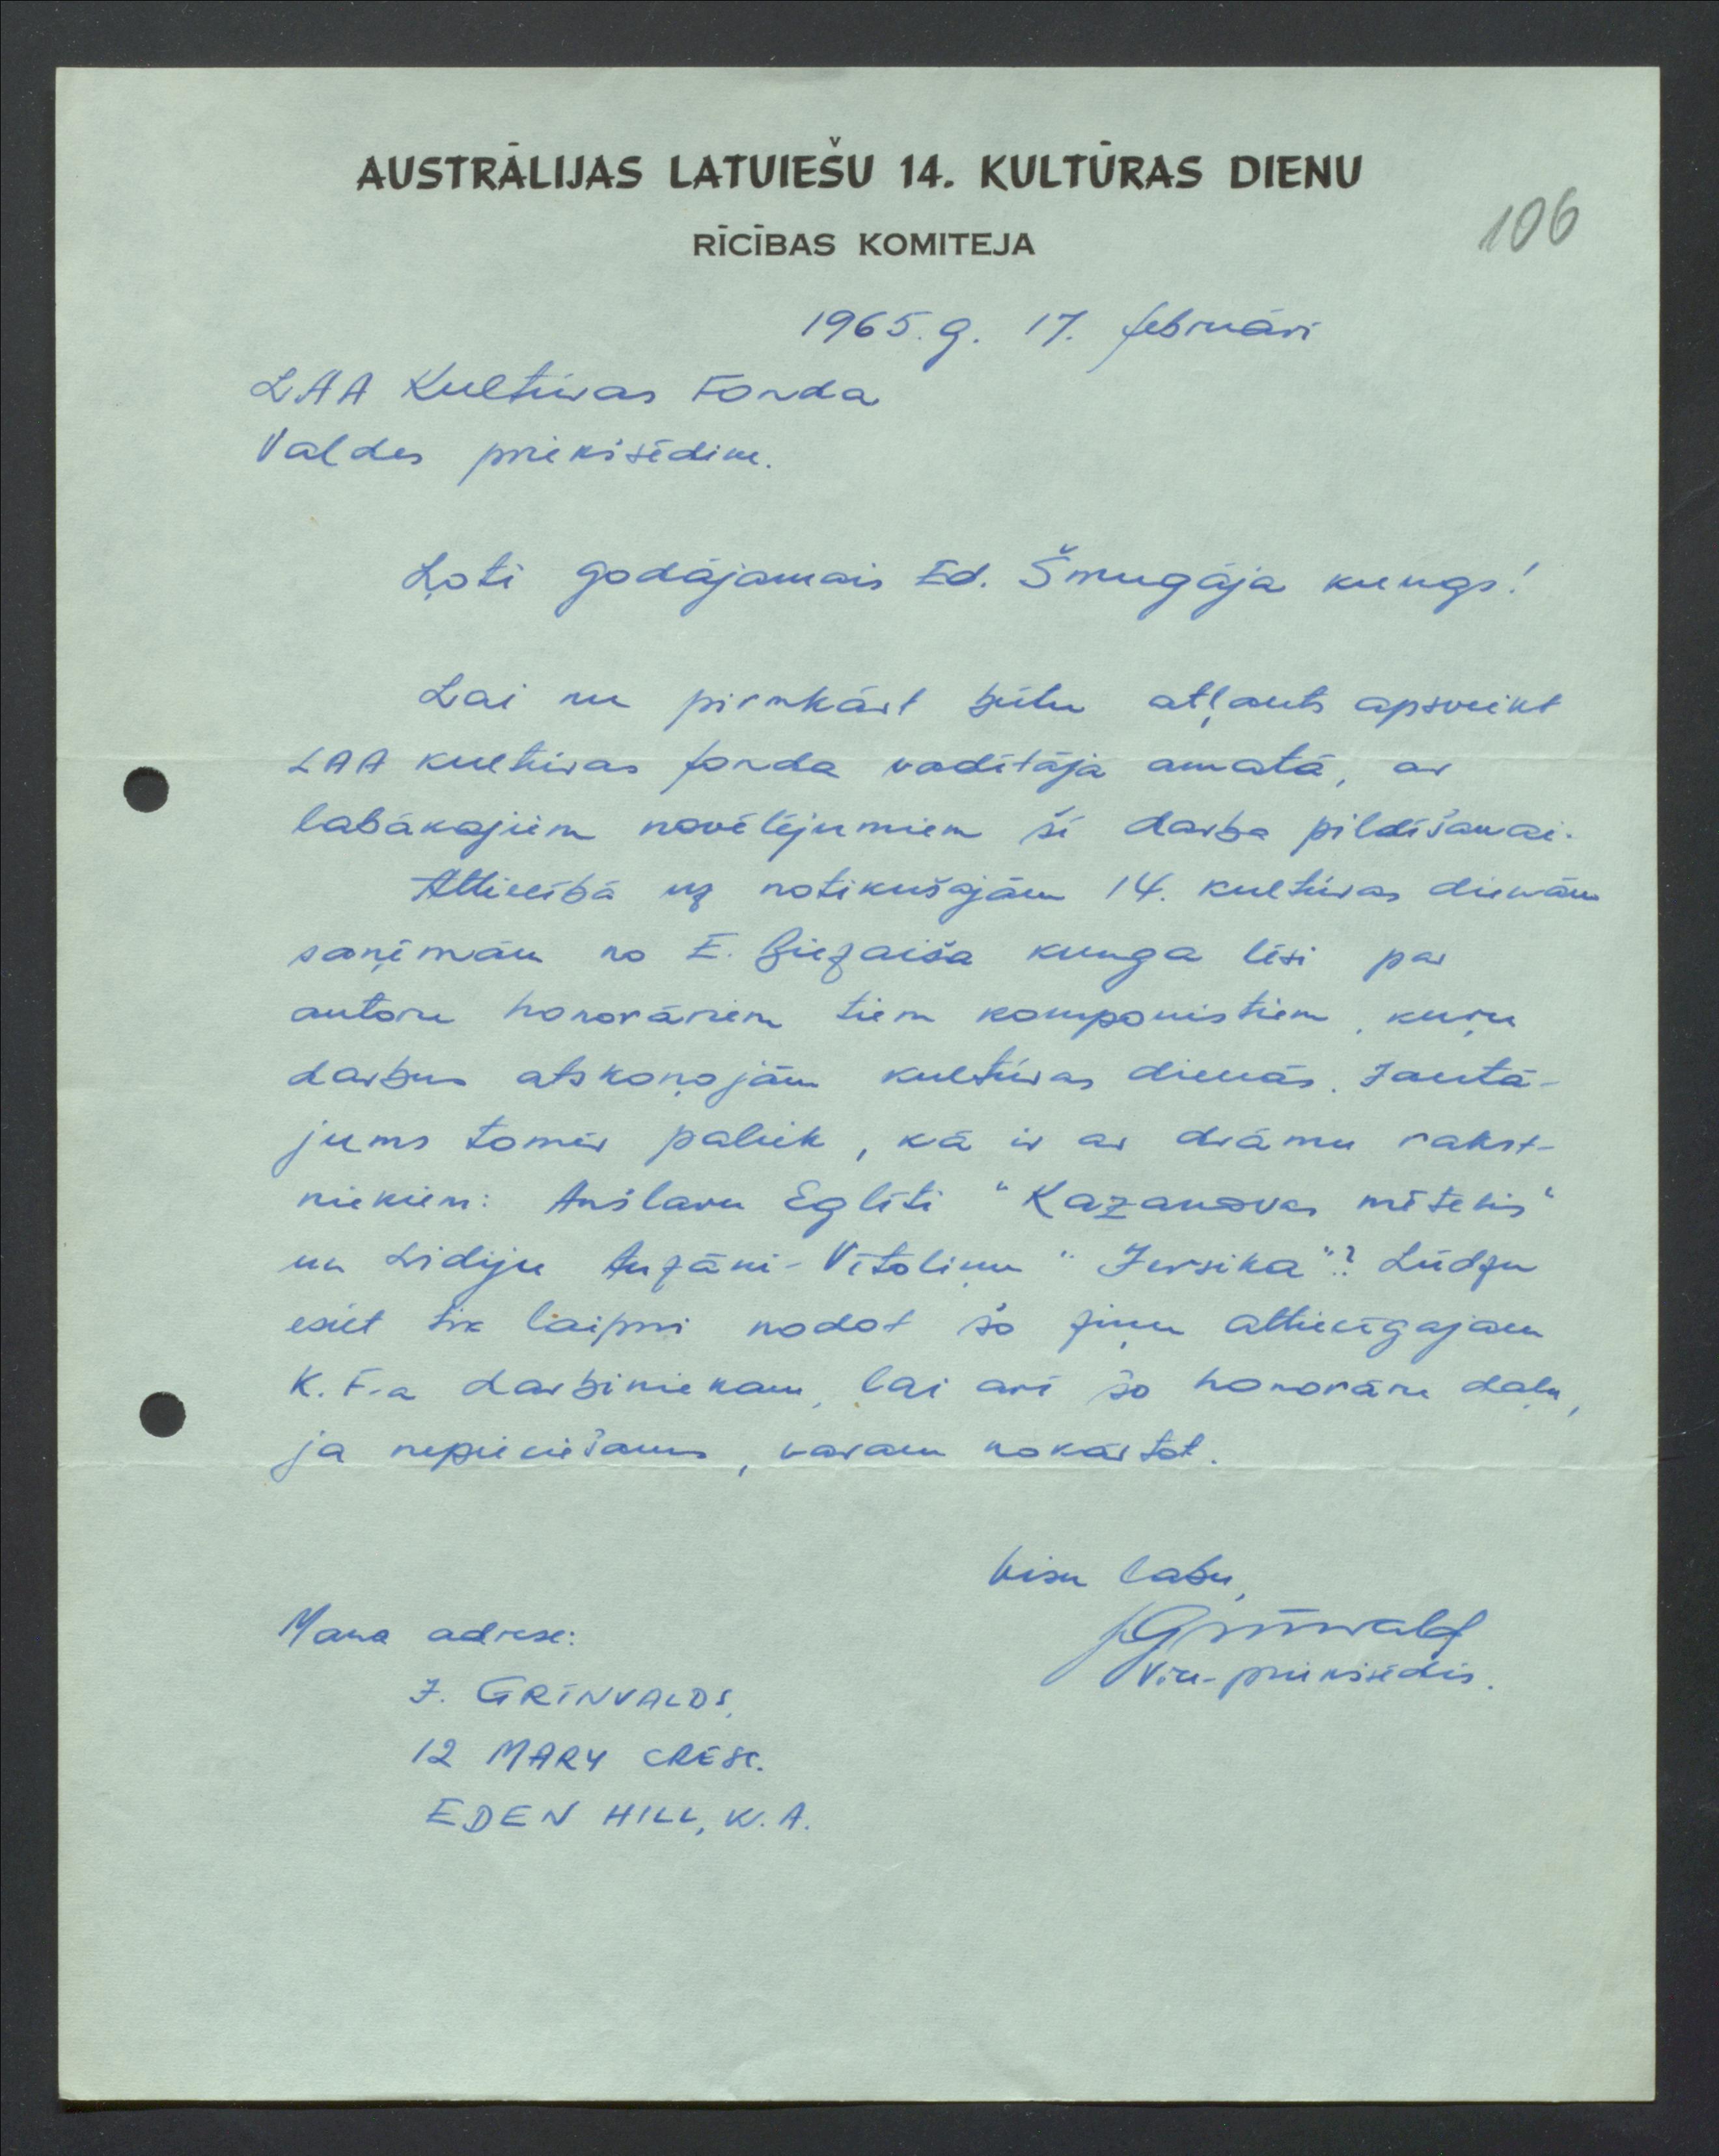 AUSTRĀLIJAS LATVIEŠU 14. KULTŪRAS DIENU
RĪCĪBAS KOMITEJA
106
1965.g. 17. februāri
LAA Kultūras Fonda
Valdes priekšsēdim.
Ļoti godājamais Ed. Šmugāja kungs!
Lai nu pirmkārt būtu atļauts apsveikt
LAA kultūras fonda vadītāja amatā, ar
labākajiem novēlējumiem šī darba pildīšanai.
Attiecībā uz notikušajām 14. kultūras dienām
saņēmām no E. Biezaiša kunga lēsi par
autoru honorāriem tiem komponistiem, kuŗu
darbus atskaņojām kultūras dienās. Jautā-
jums tomēr paliek, kā ir ar drāmu rakst-
niekiem: Anšlavu Eglīti "Kazanovas mētelis"
un Lidiju Auzāni-Vītoliņu "Jersika"? Lūdzu
esiet tik laipni nodot šo ziņu attiecīgajam
K.F-a darbiniekam, lai arī šo honorāru daļu,
ja nepieciešams, varam nokārtot.
Visu labu,
JGrīnvald
Vice-priekšsēdis.
Mana adrese:
J. GRĪNVALDS,
12 MARY CRESC.
EDEN HILL, W.A.